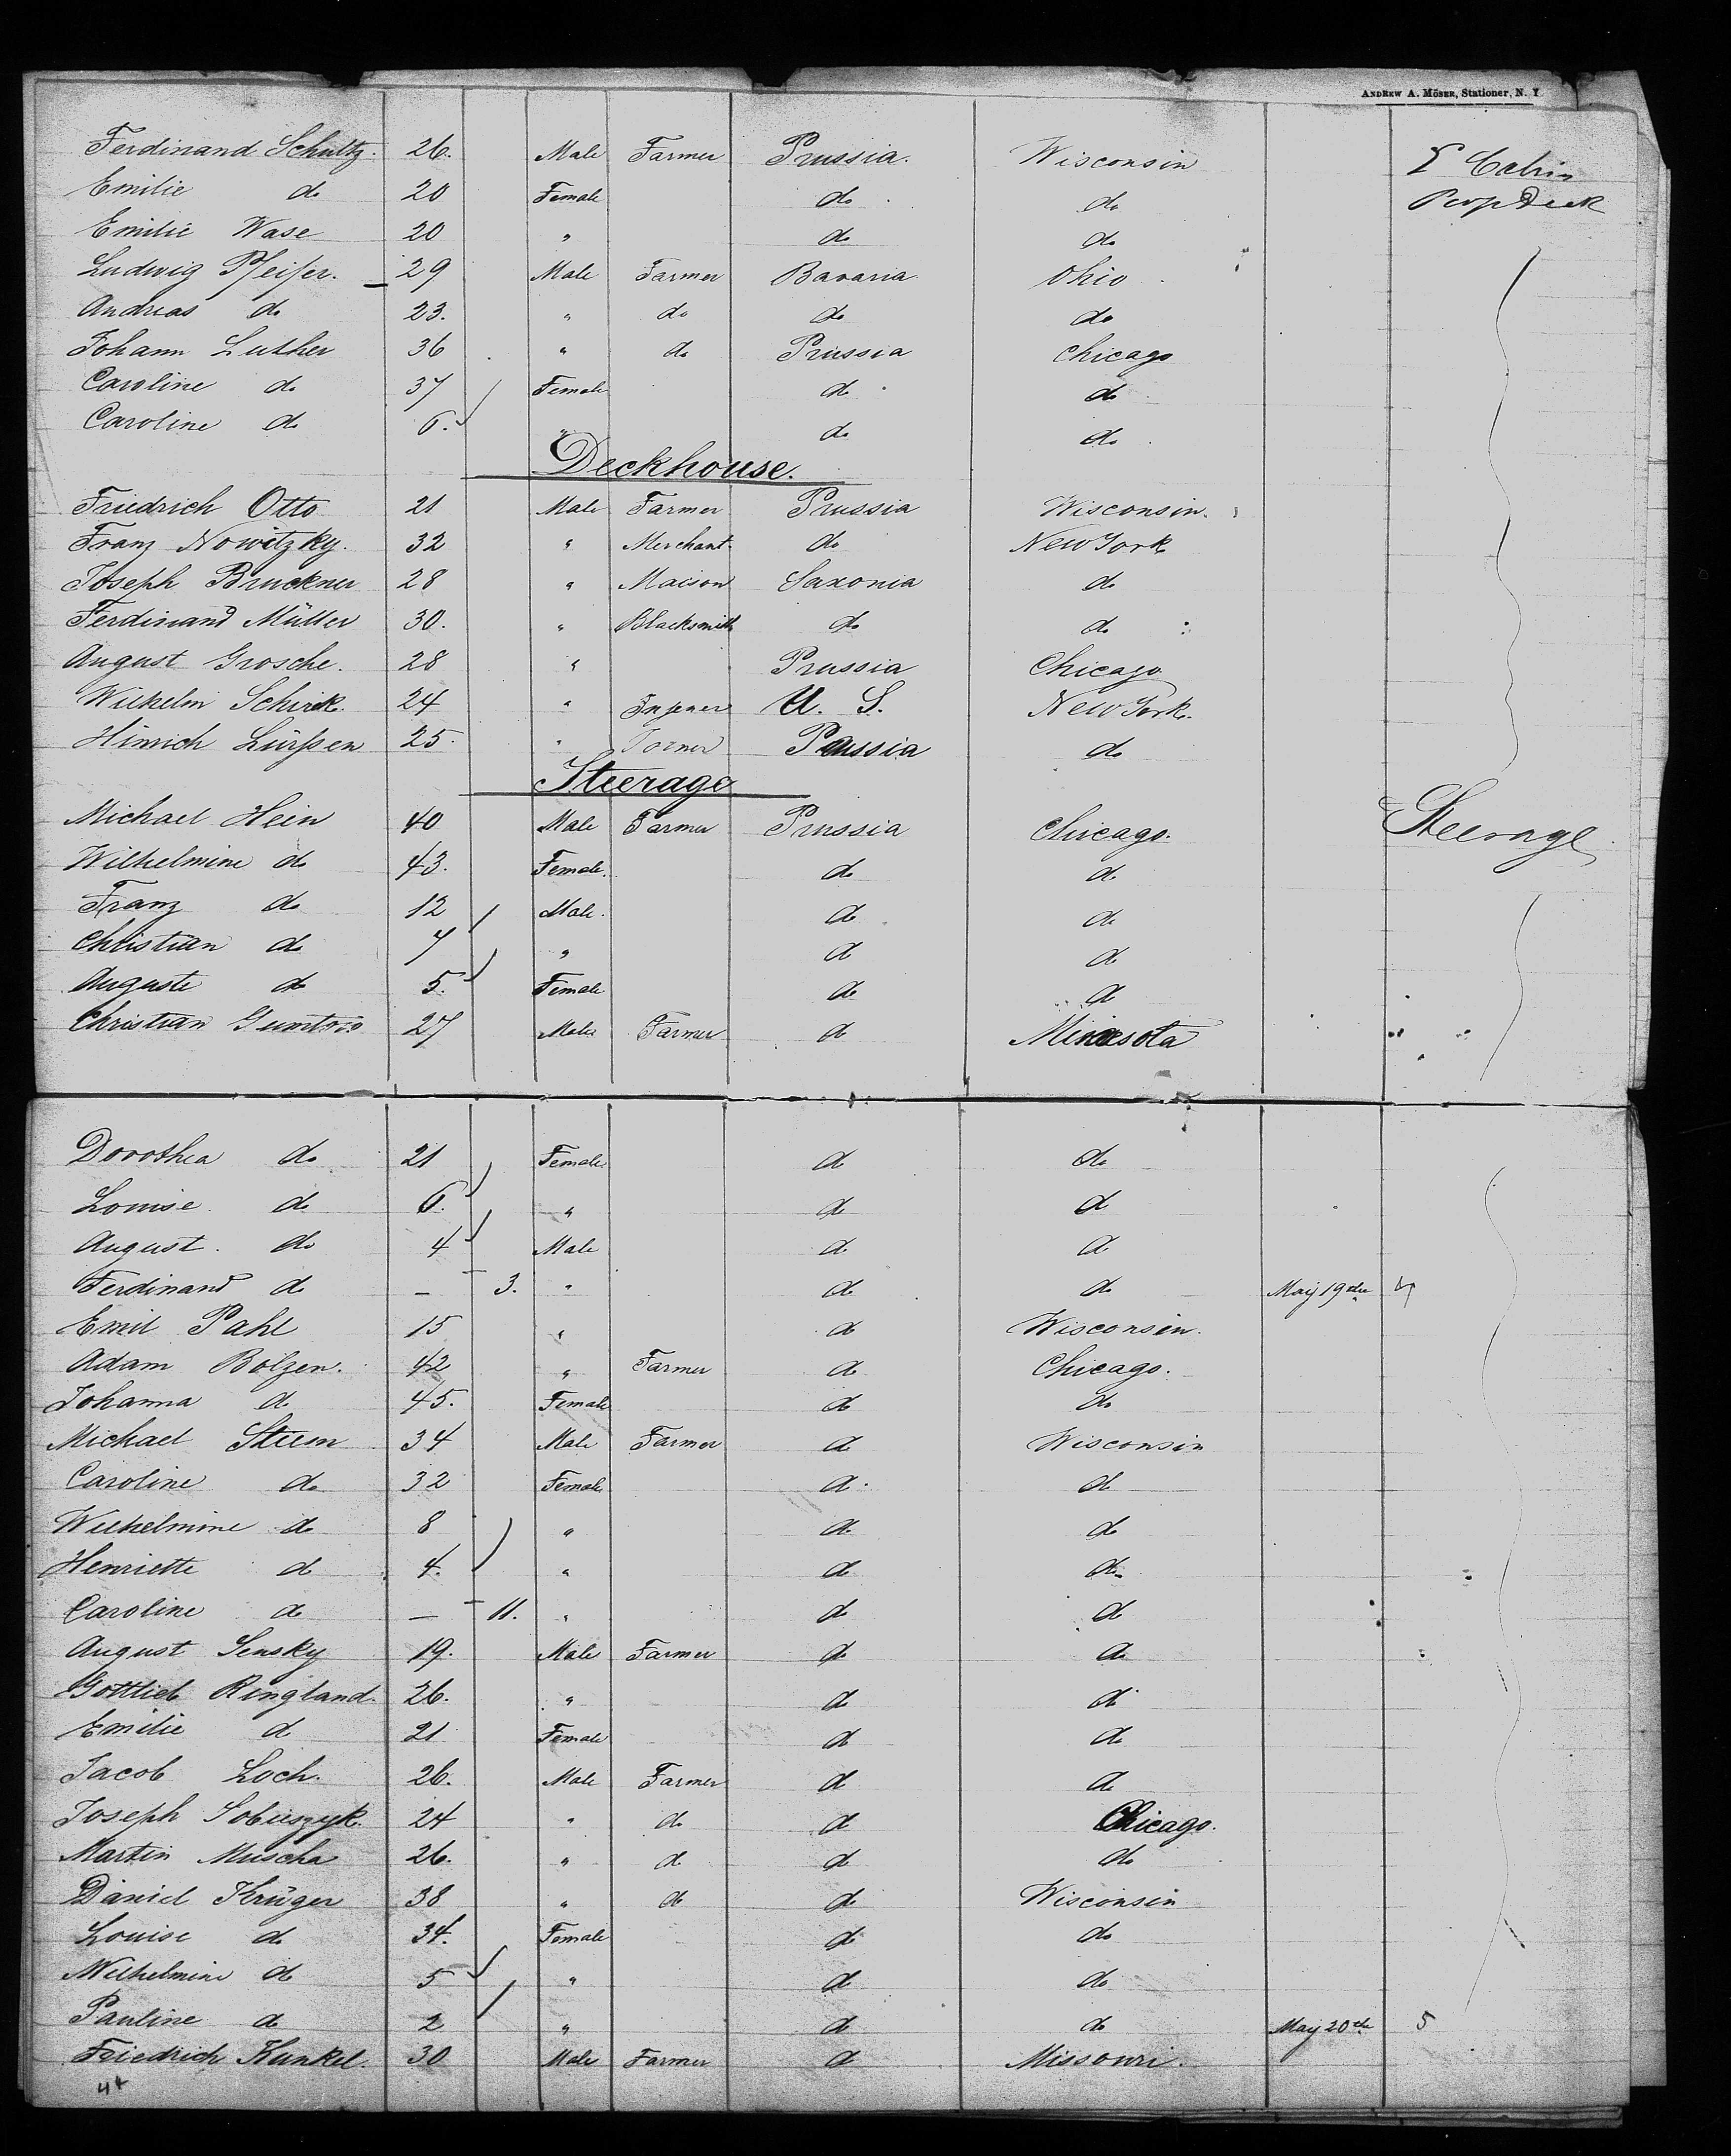 ANDREW A. MÖSER, Stationer, N. Y
Ferdinand Schultz. 26. Male Farmer Prussia. Wisconsin
Emilie do 20 Female do do Poop Deck
Emilie Wase 20 " do do
Ludwig Pfeifer. 29 Male Farmer Bavaria Ohio
Andreas do 23. " do do do
Johann Luther 36 " do Prussia Chicago
Caroline do 37 Female do do
Caroline do 6. " do do
Deckhouse.
Friedrich Otto 21 Male Farmer Prussia Wisconsin.
Franz Nowitzky. 32 " Merchant. do New York
Joseph Bruckner 28 " Maison Saxonia do
Ferdinand Müller 30. " Blacksmith do do
August Grosche. 28 " Prussia Chicago
Wilhelm Schirek. 24 " U. S. New York.
Hinrich Lürssen 25. " Torner Prussia do
Steerage
Michael Hein 40 Male Farmer Prussia Chicago. Steerage
Wilhelmine do 43. Female. do do
Franz do 12 Male. do do
Christian do 7 " do do
Auguste do 5. Female do do
Christian 27 Male Farmer do Minesota
Dorothea do 21 Female do do
Louise. do 6. " do do
August. do 4 Male do do
Ferdinand do — 3. " do do May 19th 4
Emil Pahl 15 " do Wisconsin.
Adam Bolzen. 42 " Farmer do Chicago.
Johanna do 45. Female do do
Michael 34 Male Farmer do Wisconsin
Caroline do 32 Female do do
Wilhelmine do 8 " do do
Henriette do 4. " do do
Caroline do — 11. " do do
August Sensky 19. Male Farmer do do
Gottlieb Ringland. 26. " do do
Emilie do 21 Female do do
Jacob Loch. 26. Male Farmer do do
Joseph Sobuszyk. 24 " do do Chicago.
Martin Muscha 26. " do do do
Daniel Krüger 38 " do do Wisconsin
Louise do 34. Female do do
Wilhelmine do 5 " do do
Pauline do 2 " do do May 20th 5
Friedrich Kunkel. 30 Male Farmer do Missouri.
44